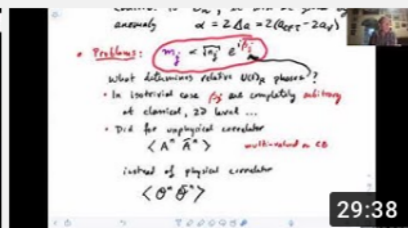 anomaly α = 2Δa = 2(a_CFT - 2a_v)
• Problems: m_j ∝ √n_j e^{iβ_j}
what determines relative U(1)_R phases?
• In isotrivial case β_j are completely arbitrary
at classical, 2D level ...
• Did for unphysical correlator
⟨A^n Ā^n⟩ multivalued on CB
instead of physical correlator
⟨O^n Ō^n⟩
29:38